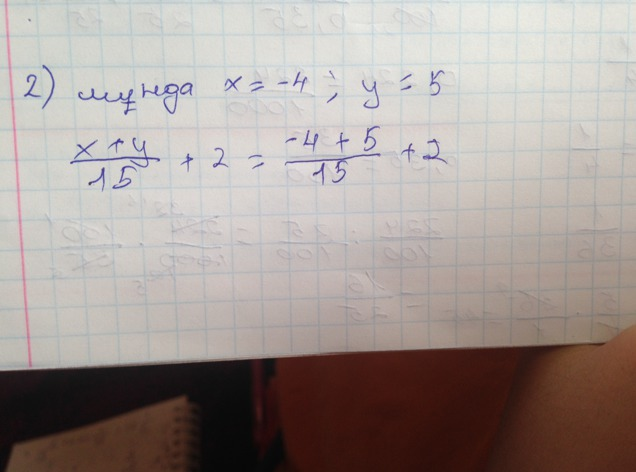 2) мұнда x = -4 ; y = 5
x + y / 15 + 2 = -4 + 5 / 15 + 2